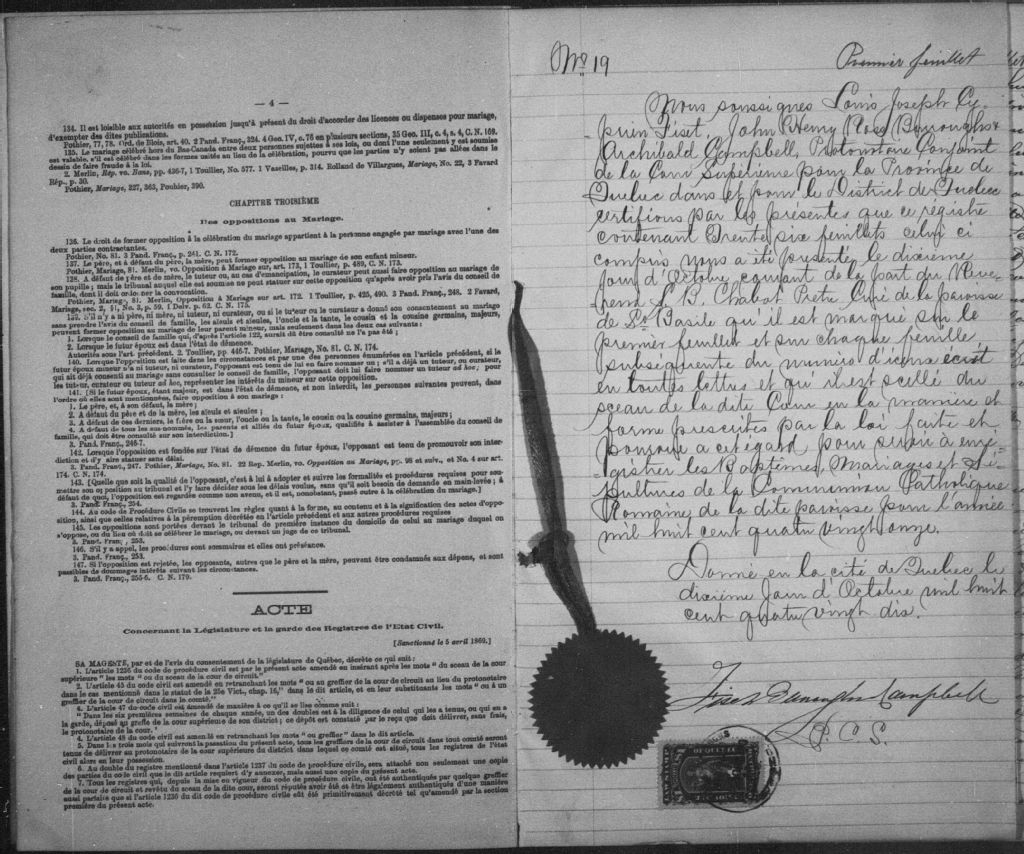 — 4 —
134. Il est loisible aux autorités en possession jusqu'à présent du droit d'accorder des licences ou dispenses pour mariage,
d'exempter des dites publications.
Pothier, 77, 78. Ord. de Blois, art. 40. 2 Pand. Franç., 324. 4 Geo. IV, c. 76 en plusieurs sections, 35 Geo. III, c. 4, s. 4, C. N. 169.
135. Le mariage célébré hors du Bas-Canada entre deux personnes sujettes à ses lois, ou dont l'une seulement y est soumise
est valable, s'il est célébré dans les formes usités au lieu de la célébration, pourvu que les parties n'y soient pas allées dans le
dessein de faire fraude à la loi.
2. Merlin, Rép. vo. Bans, pp. 436-7, 1 Toullier, No. 577. 1 Vaseilles, p. 314. Rolland de Villargues, Mariage, No. 22, 3 Favard
Rép., p. 30.
Pothier, Mariage, 327, 363, Pouhier, 390.
CHAPITRE TROISIÈME
Des oppositions au Mariage.
136. Le droit de former opposition à la célébration du mariage appartient à la personne engagée par mariage avec l'une des
deux parties contractantes.
Pothier, No. 81. 3 Pand. Franç., p. 241. C. N. 172.
137. Le père, et à défaut du père, la mère, peut former opposition au mariage de son enfant mineur.
Pothier, Mariage, 81. Merlin, vo. Opposition à Mariage sur, art. 173, 1 Toullier, p. 489, C. N. 173.
138. A défaut de père et de mère, le tuteur ou, au cas d'émancipation, le curateur peut aussi faire opposition au mariage de
son pupille; mais le tribunal auquel elle est soumise ne peut statuer sur cette opposition qu'après avoir pris l'avis du conseil de
famille, dont il doit ordonner la convocation.
Pothier, Mariage, 81. Merlin, Opposition à Mariage sur art. 172. 1 Toullier, p. 425, 490. 3 Pand. Franç., 248. 2 Favard,
Mariage, sec. 2, §1, No. 3, p. 59, 1 Delv. p. 62. C. N. 175.
139. S'il n'y a ni père, ni mère, ni tuteur, ni curateur, ou si le tuteur ou le curateur a donné son consentement au mariage
sans prendre l'avis du conseil de famille, les aïeuls et aïeules, l'oncle et la tante, le cousin et la cousine germains, majeurs,
peuvent former opposition au mariage de leur parent mineur, mais seulement dans les deux cas suivants:
1. Lorsque le conseil de famille qui, d'après l'article 122, aurait dû être consulté ne l'a pas été;
2. Lorsque le futur époux est dans l'état de démence.
Autorités sous l'art. précédent. 2. Toullier, pp. 446-7. Pothier, Mariage, No. 81. C. N. 174.
140. Lorsque l'opposition est faite dans les circonstances et par une des personnes énumérées en l'article précédent, si le
futur époux mineur n'a ni tuteur, ni curateur, l'opposant est tenu de lui en faire nommer un; s'il a déjà un tuteur, ou curateur,
qui ait déjà consenti au mariage sans consulter le conseil de famille, l'opposant doit lui faire nommer un tuteur ad hoc; pour
les tuteur, curateur ou tuteur ad hoc, représenter les intérêts du mineur sur cette opposition.
141. [Si le futur époux, étant majeur, est dans l'état de démence, et non interdit, les personnes suivantes peuvent, dans
l'ordre où elles sont mentionnées, faire opposition à son mariage:
1. Le père, et, à son défaut, la mère;
2. A défaut du père et de la mère, les aïeuls et aïeules;
3. A défaut de ces derniers, le frère ou la sœur, l'oncle ou la tante, le cousin ou la cousine germains, majeurs;
4. A défaut de tous les sus-nommés, les parents et alliés du futur époux, qualifiés à assister à l'assemblée du conseil de
famille, qui doit être consulté sur son interdiction.]
3. Pand. Franç., 246-7.
142. Lorsque l'opposition est fondée sur l'état de démence du futur époux, l'opposant est tenu de promouvoir son inter-
diction et d'y faire statuer sans délai.
3. Pand. Franç., 247. Pothier, Mariage, No. 81. 22 Rep. Merlin, vo. Opposition au Mariage, pp. 98 et suiv., et No. 4 sur art.
174. C. N. 174.
143. [Quelle que soit la qualité de l'opposant, c'est à lui à adopter et suivre les formalités et procédures requises pour sou-
mettre son opposition au tribunal et l'y faire décider sous les délais voulus, sans qu'il soit besoin de demande en main-levée; à
défaut de quoi, l'opposition est regardée comme non avenu, et il est, nonobstant, passé outre à la célébration du mariage.]
3. Pand. Franç., 254.
144. Au code de Procédure Civile se trouvent les règles quant à la forme, au contenu et à la signification des actes d'oppo-
sition, ainsi que celles relatives à la péremption décrétée en l'article précédent et aux autres procédures requises
145. Les oppositions sont portées devant le tribunal de première instance du domicile de celui au mariage duquel on
s'oppose, ou du lieu où doit se célébrer le mariage, ou devant un juge de ce tribunal.
3. Pand. Franç., 253.
146. S'il y a appel, les procédures sont sommaires et elles ont préséance.
3. Pand. Franç., 253.
147. Si l'opposition est rejetée, les opposants, autres que le père et la mère, peuvent être condamnés aux dépens, et sont
passibles de dommages intérêts suivant les circonstances.
3. Pand. Franç., 255-6. C. N. 179.
ACTE
Concernant la Législature et la garde des Registres de l'Etat Civil.
[Sanctionné le 5 avril 1869.]
SA MAGESTÉ, par et de l'avis du consentement de la législature de Québec, décrète ce qui suit:
1. L'article 1236 du code de procédure civil est par le présent acte amendé en insérant après les mots "du sceau de la cour
supérieure" les mots "ou du sceau de la cour de circuit."
2. L'article 45 du code civil est amendé en retranchant les mots "ou au greffier de la cour de circuit au lieu du protonotaire
dans le cas mentionné dans le statut de la 25e Vict., chap. 16," dans le dit article, et en leur substituant les mots "ou à un
greffier de la cour de circuit dans le comté."
3. L'article 47 du code civil est amendé de manière à ce qu'il se lise comme suit:
"Dans les six premières semaines de chaque année, un des doubles est à la diligence de celui qui les a tenus, ou qui en a
la garde, déposé au greffe de la cour supérieure de son district; ce dépôt est constaté par le reçu que doit délivrer, sans frais,
le protonotaire de la cour."
4. L'article 48 du code civil est amendé en retranchant les mots "ou greffier" dans le dit article.
5. Dans les trois mois qui suivront la passation du présent acte, tous les greffiers de la cour de circuit dans tout comté seront
tenus de délivrer au protonotaire de la cour supérieure du district dans lequel ce comté est situé, tous les registres de l'état
civil alors en leur possession.
6. Au double du registre mentionné dans l'article 1237 du code de procédure civile, sera attaché non seulement une copie
des parties du code civil que le dit article requiert d'y annexer, mais aussi une copie du présent acte.
7. Tous les registres qui, depuis la mise en vigueur du code de procédure civile, ont été authentiqués par quelque greffier
de la cour de circuit et revêtu du sceau de la dite cour, seront réputés avoir été et être légalement authentiqués d'une manière
aussi parfaite que si l'article 1236 du dit code de procédure civile eût été primitivement décrété tel qu'amendé par la section
première du présent acte.
No 19
Premier feuillet
Nous soussignés Louis Joseph Cy-
prien Fiset, John Henry Ross Burroughs &
Archibald Campbell, Protonotaire Conjoint
de la Cour Supérieure pour la Province de
Québec dans et pour le District de Québec
certifions par les présentes que ce régistre
contenant Trente six feuillets celui ci
compris nous a été présenté le dixième
jour d'Octobre courant de la part du Réve-
rend L. B. Chabot Ptre Curé de la paroisse
de St Basile qu'il est marqué sur le
premier feuillet et sur chaque feuillet
subséquente du numéro d'iceux écrit
en toutes lettres et qu'il est scellé du
sceau de la dite Cour en la manière et
forme prescrites par la loi faite et
pourvue a cet égard pour servir à enre-
gistrer les Baptêmes, Mariages et Sé-
pultures de la Communion Catholique
Romaine de la dite paroisse pour l'année
mil huit cent quatre vingt onze.
Donné en la cité de Québec le
dixième jour d'Octobre mil huit
cent quatre vingt dix.
Fiset Burroughs Campbell
P. C. S.